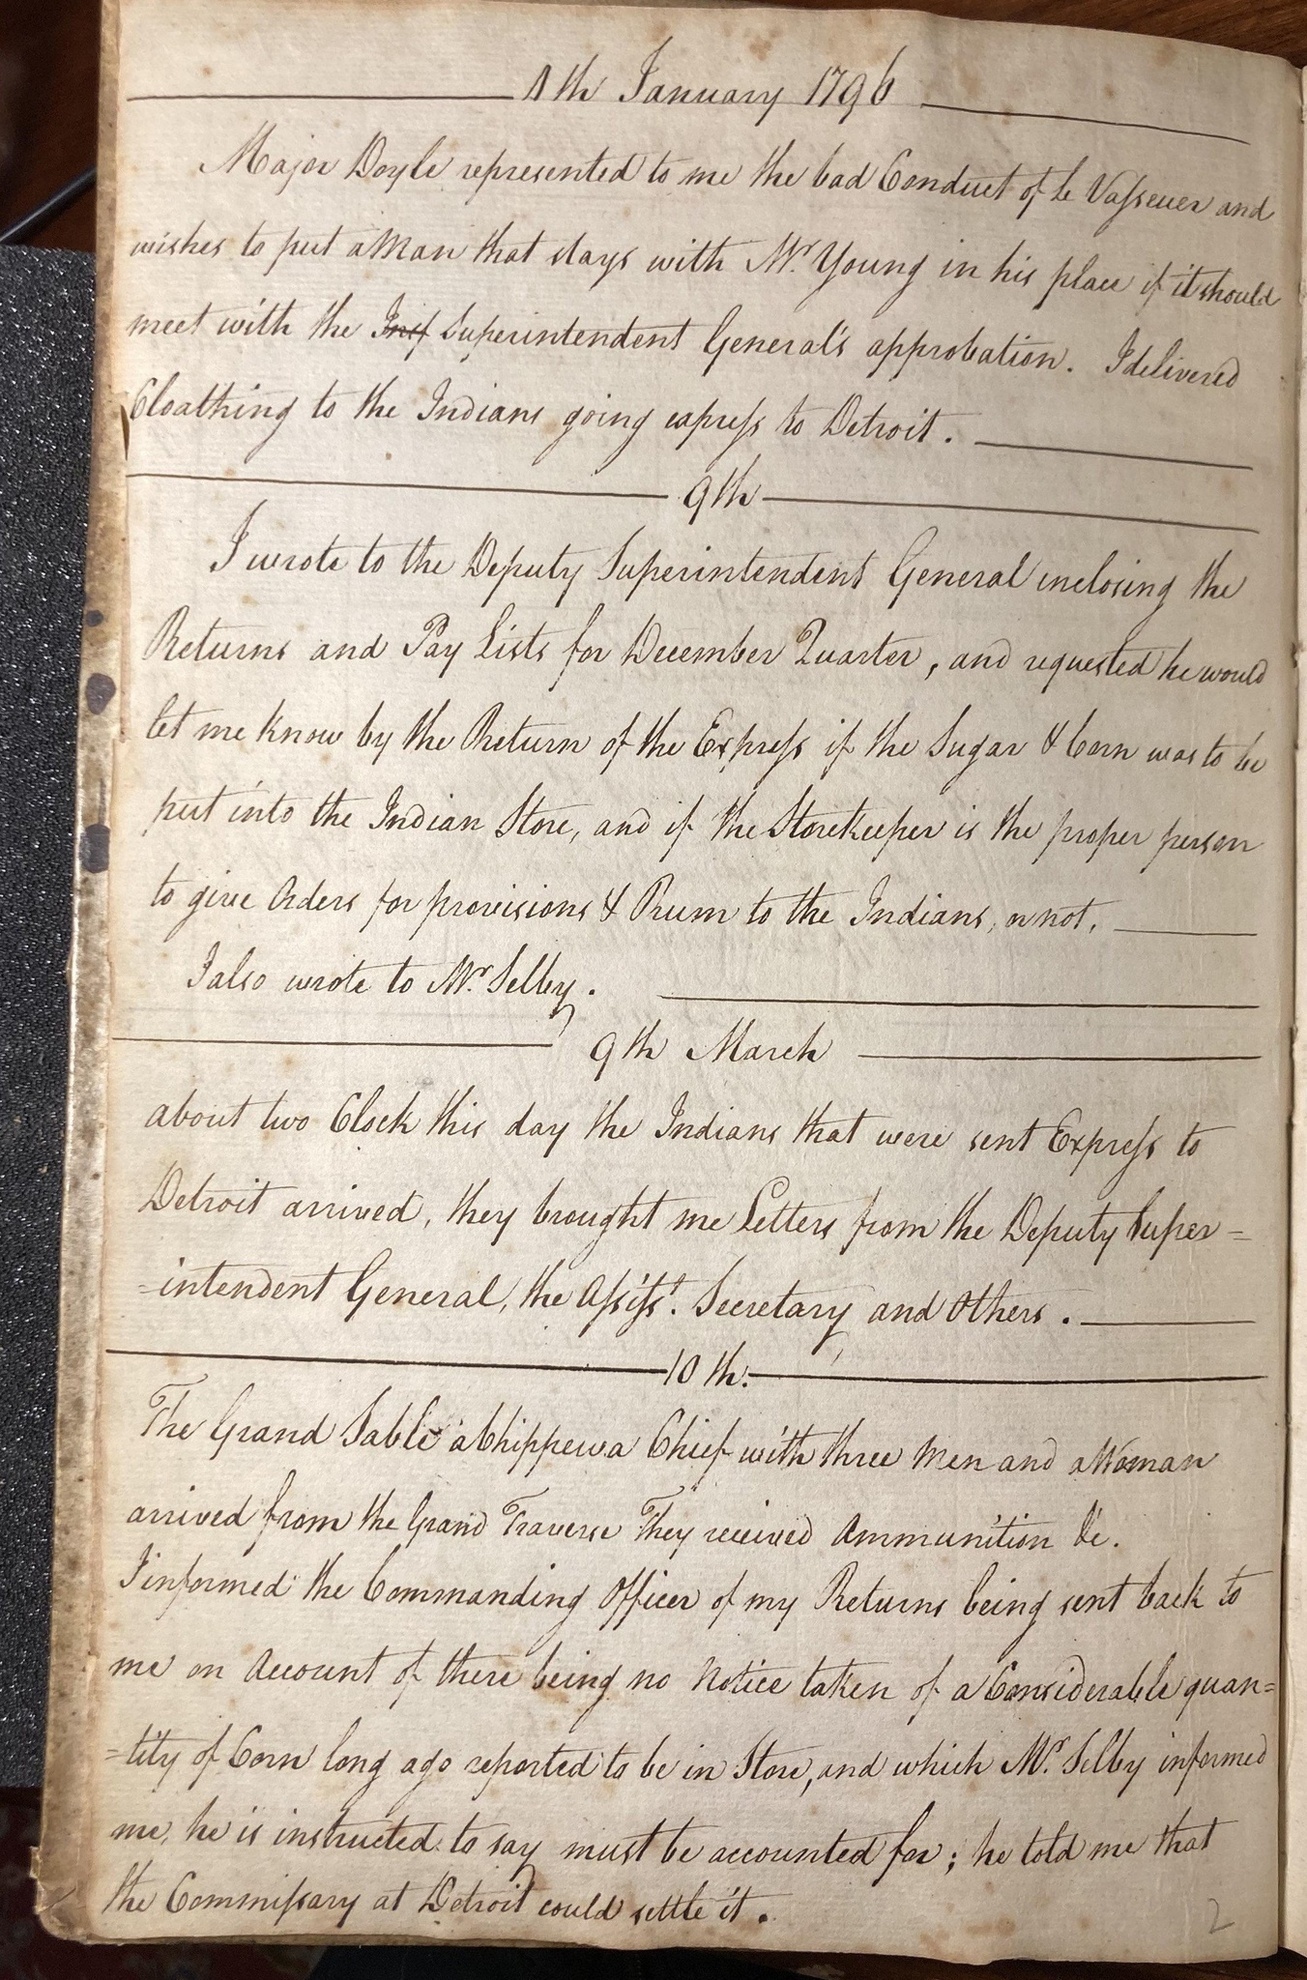 8th January 1796
Major Doyle represented to me the bad Conduct of le Vasseur and
wishes to put a Man that stays with Mr. Young in his place if it should
meet with the Superintendent General's approbation. I delivered
Cloathing to the Indians going express to Detroit.
9th
I wrote to the Deputy Superintendent General inclosing the
Returns and Pay Lists for December Quarter, and requested he would
let me know by the Return of the Express if the Sugar & Corn was to be
put into the Indian Store, and if the Storekeeper is the proper person
to give Orders for provisions & Rum to the Indians, or not.
I also wrote to Mr. Selby.
9th March
about two Clock this day the Indians that were sent Express to
Detroit arrived, they brought me Letters from the Deputy Super=
=intendent General, the Assist. Secretary and Others.
10th.
The Grand Sable a Chippewa Chief with three Men and a Woman
arrived from the Grand Traverse They received Ammunition &c.
I informed the Commanding Officer of my Returns being sent back to
me on Account of there being no Notice taken of a Considerable quan=
=tity of Corn long ago reported to be in Store, and which Mr. Selby informed
me, he is instructed to say must be accounted for; he told me that
the Commissary at Detroit could settle it.
2